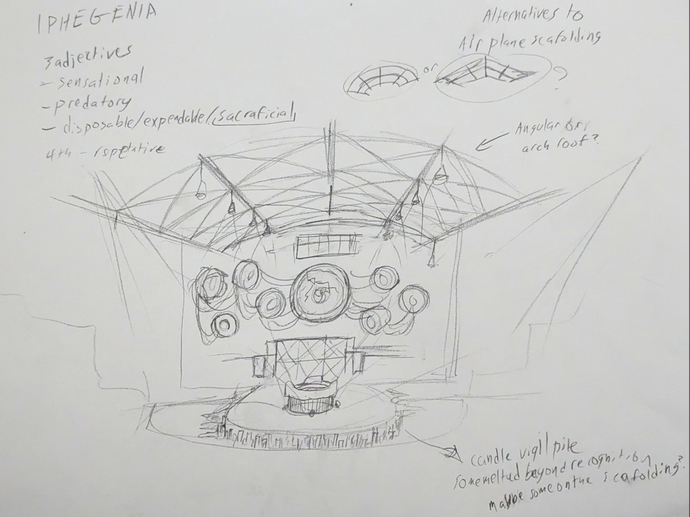 IPHEGENIA
3 adjectives
- sensational
- predatory
- disposable/expendable/sacraficial
4th - rspetative
Alternatives to
Air plane scafolding
or ?
Angular or
arch roof?
candle vigil pile
some melted beyond recognition
maybe some on the scafolding?